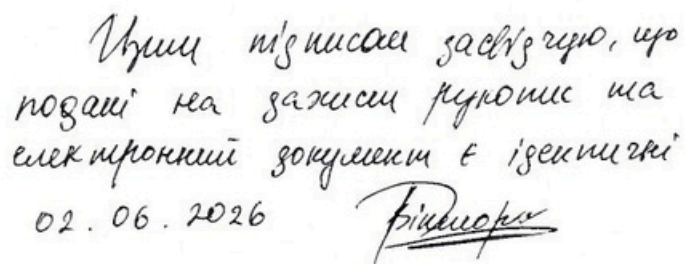 Цим підписом засвідчую, що
подані на захист рукопис та
електронний документ є ідентичні
02.06.2026